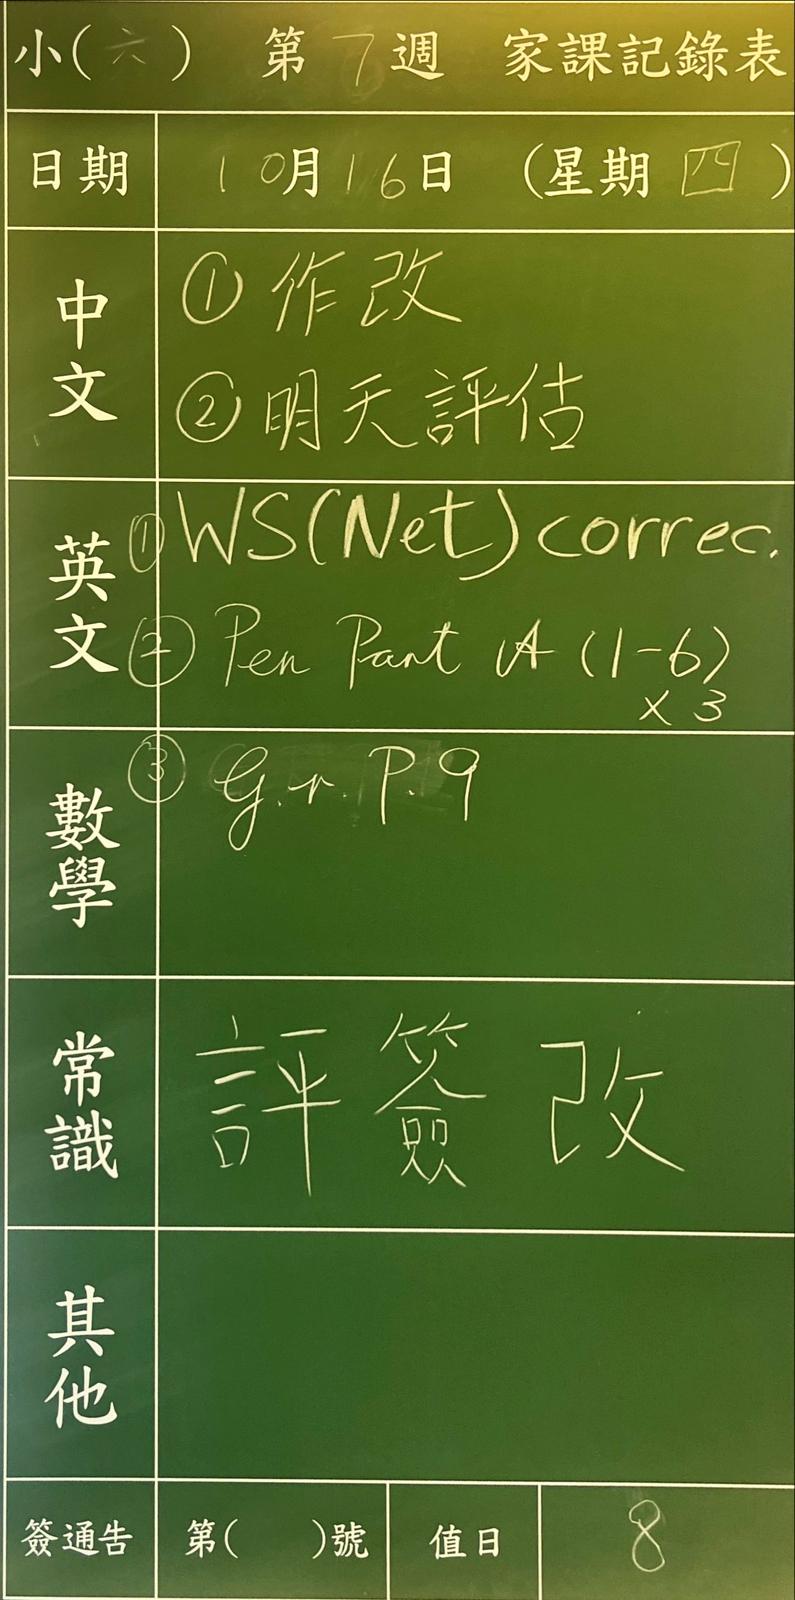 小(六) 第7週 家課記錄表
日期 10月16日 (星期四)
中文 ①作改
②明天評估
英文 ①WS(Net)correc.
②Pen Part A (1-6)
x 3
③G.r. P.9
數學
常識 評簽改
其他
簽通告 第( )號 值日 8